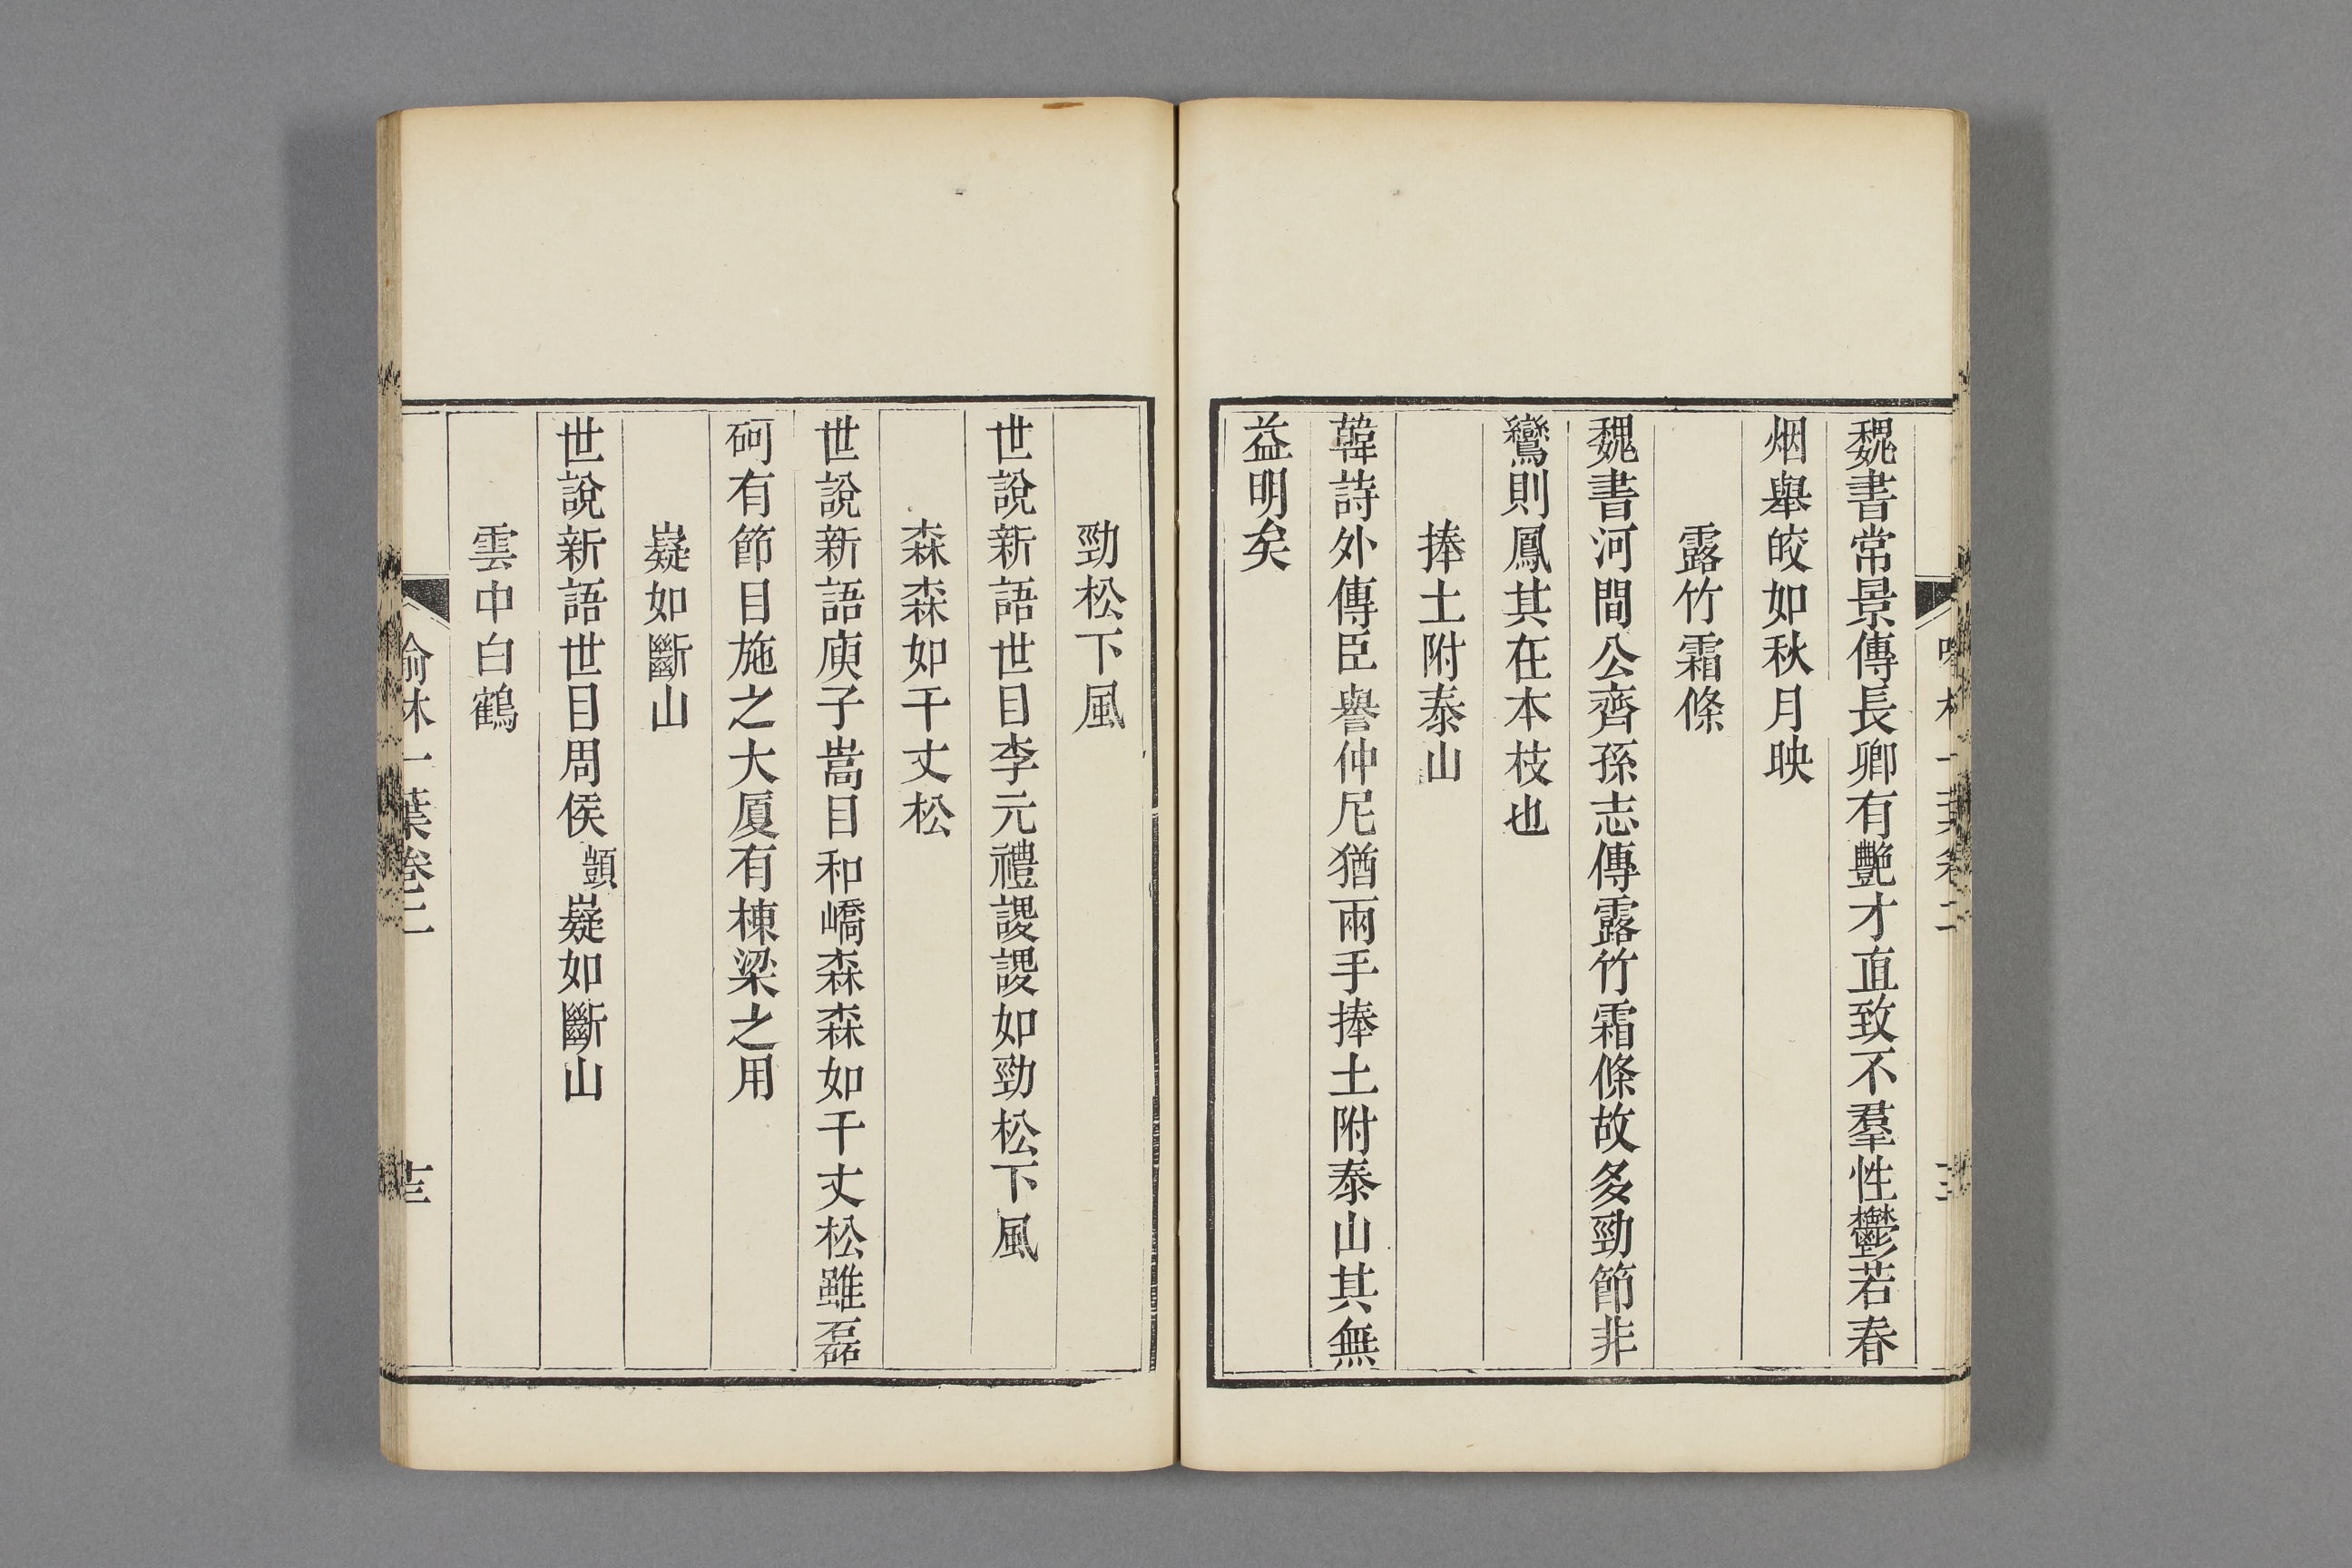 魏書常景傳長卿有艷才直致不羣性鬱若春
烟舉皎如秋月映
露竹霜條
魏書河間公齊孫志傳露竹霜條故多勁節非
鸞則鳳其在本枝也
捧土附泰山
韓詩外傳臣譽仲尼猶兩手捧土附泰山其無
益明矣
勁松下風
世說新語世目李元禮謖謖如勁松下風
森森如千丈松
世說新語庾子嵩目和嶠森森如千丈松雖磊
砢有節目施之大厦有棟梁之用
嶷如斷山
世說新語世目周侯顗嶷如斷山
雲中白鶴
喻林一葉卷二